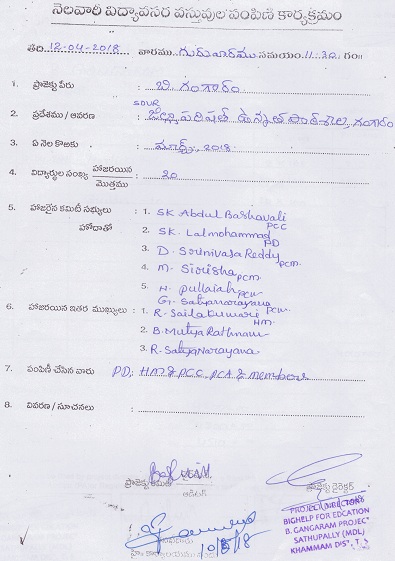 నెలవారీ విద్యావసర వస్తువుల పంపిణీ కార్యక్రమం
తేది 12-04-2018 వారము గురువారము సమయం 11:30 గం॥
1. ప్రాజెక్టు పేరు : బి గంగారం
2. ప్రదేశము / ఆవరణ : జిల్లా పరిషత్ ఉన్నత పాఠశాల, గంగారం
3. ఏ నెల కొఱకు : మార్చ్, 2018
4. విద్యార్థుల సంఖ్య హాజరయిన / మొత్తము : 20
5. హాజరైన కమిటీ సభ్యులు హోదాతో : 1. SK. Abdul Bashavali PCC
2. SK. Lalmohammad PD
3. D. Srinivasa Reddy PCM
4. M. Sirisha PCM
5. H. Pullaiah PCM
G. Satyanarayana PCM
6. హాజరయిన ఇతర ముఖ్యులు : 1. R. Sailakumari HM
2. B. Mutya Rathnam
3. R. Satya Narayana
7. పంపిణీ చేసిన వారు PD, HM & PCC, PCA & members
8. వివరణ / సూచనలు :
ఆడిటర్
ప్రాజెక్టు డైరెక్టర్
PROJECT DIRECTOR
BIGHELP FOR EDCATION
B. GANGARAM PROJEC
SATHUPALLY (MDL)
KHAMMAM DIST. T.S
10/5/18